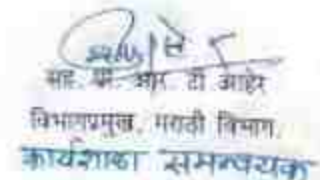 सह. प्रा. आर. टी. आहेर
विभागप्रमुख, मराठी विभाग,
कार्यशाळा समन्वयक